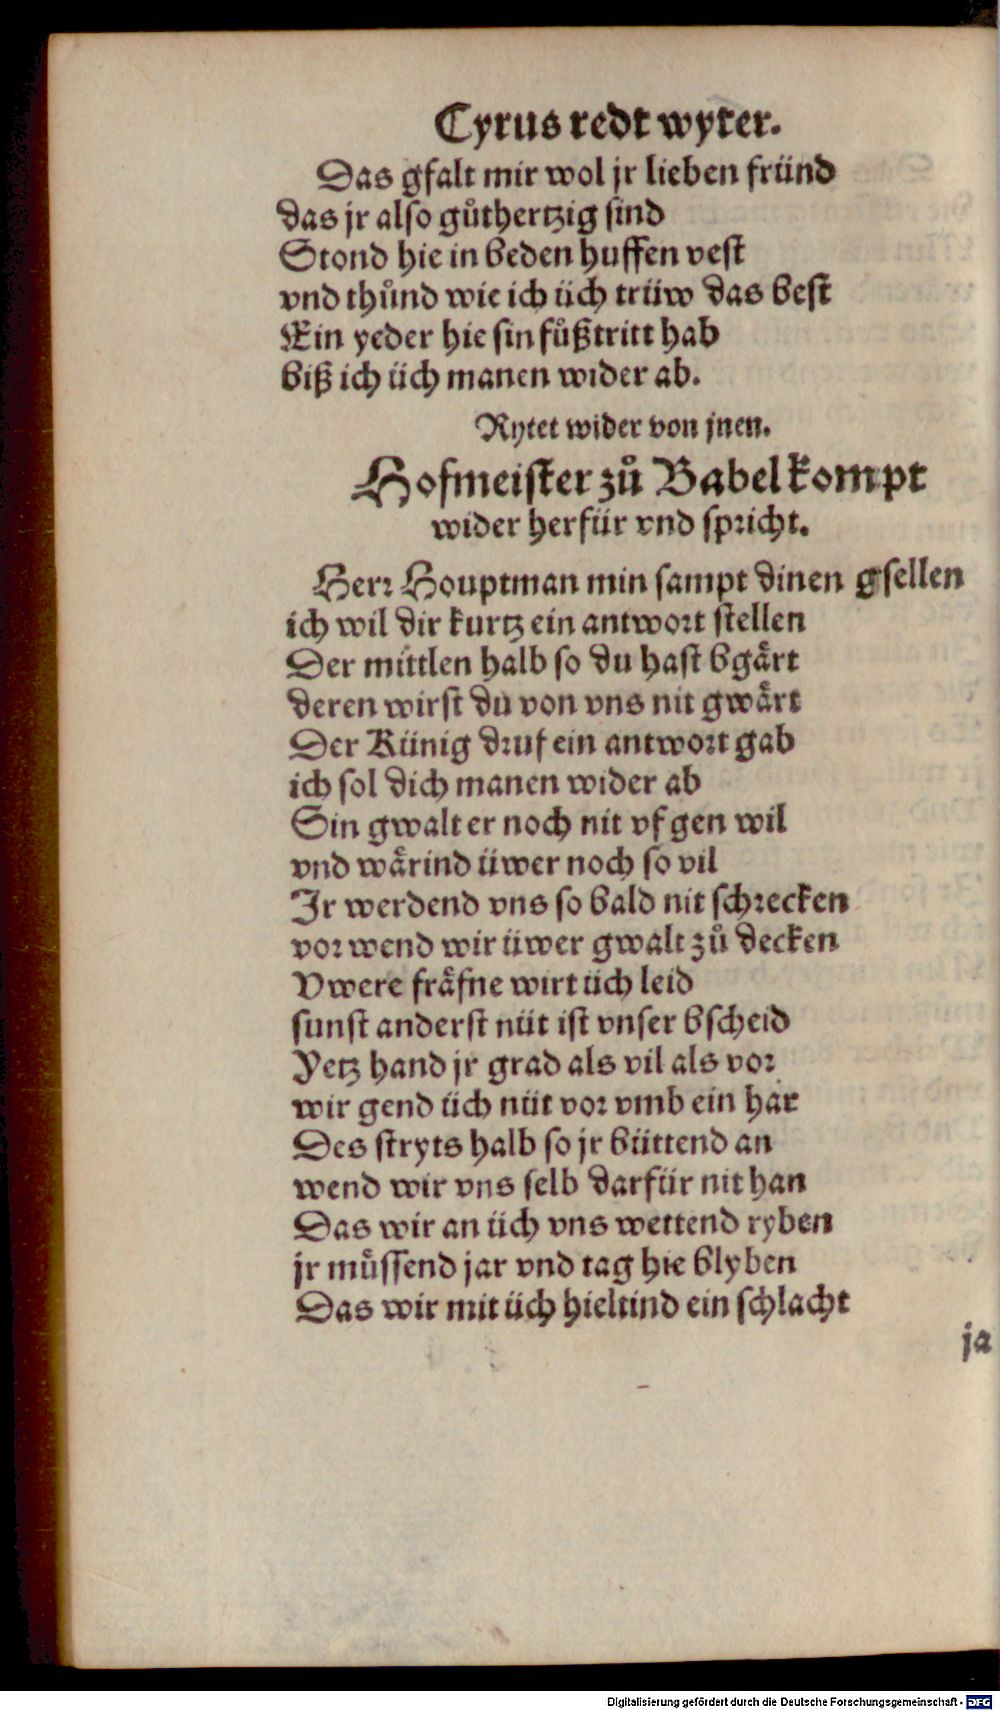 Cyrus redt wyter.
Das gfalt mir wol jr lieben fründ
das jr also gůthertzig sind
Stond hie in beden huffen vest
vnd thůnd wie ich üch trüw das best
Ein yeder hie sin fůßtritt hab
biß ich üch manen wider ab.
Rytet wider von jnen.
Hofmeister zů Babel kompt
wider herfür vnd spricht.
Herr Houptman min sampt dinen gsellen
ich wil dir kurtz ein antwort stellen
Der mittlen halb so du hast bgärt
deren wirst du von vns nit gwärt
Der Künig druf ein antwort gab
ich sol dich manen wider ab
Sin gwalt er noch nit vf gen wil
vnd wärind üwer noch so vil
Ir werdend vns so bald nit schrecken
vor wend wir üwer gwalt zů decken
Vwere fräfne wirt üch leid
sunst anderst nüt ist vnser bscheid
Yetz hand jr grad als vil als vor
wir gend üch nüt vor vmb ein har
Des stryts halb so jr büttend an
wend wir vns selb darfür nit han
Das wir an üch vns wettend ryben
jr müssend jar vnd tag hie blyben
Das wir mit üch hieltind ein schlacht
ja
Digitalisierung gefördert durch die Deutsche Forschungsgemeinschaft - DFG